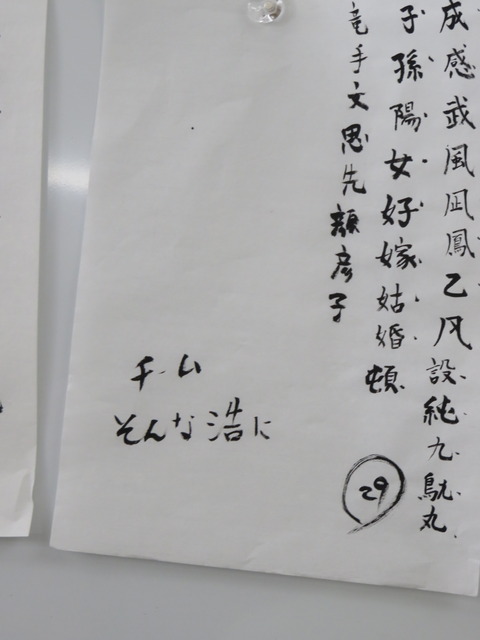 成感武風凪鳳乙凡設純九鳩丸
子孫陽女好嫁姑婚頓
竜手文思先顔彦子
チーム
そんな浩に
29